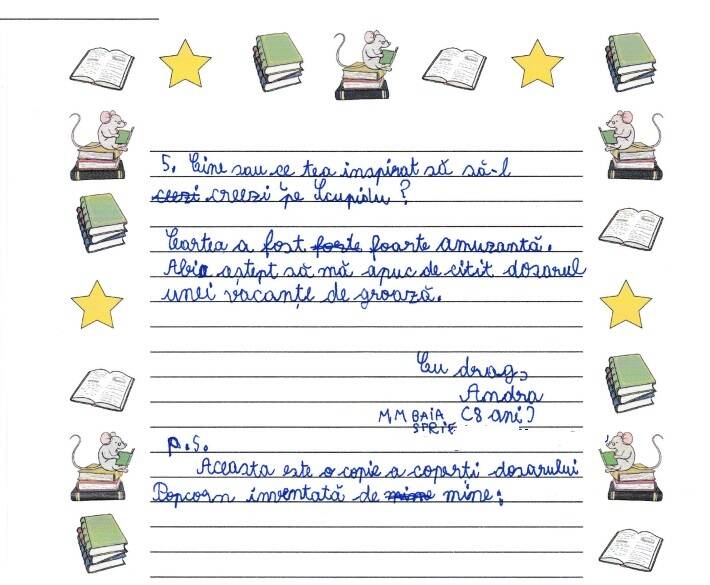 5. Cine sau ce tea inspirat să să-l
creezi creezi pe Scupidu?
Cartea a fost forte foarte amuzantă.
Abia aștept să mă apuc de citit dosarul
unei vacanțe de groază.
Cu drag,
Andra
MM BAIA (8 ani)
SPRIE
P.S.
Aceasta este o copie a coperti dosarului
Popcorn inventată de mine mine: